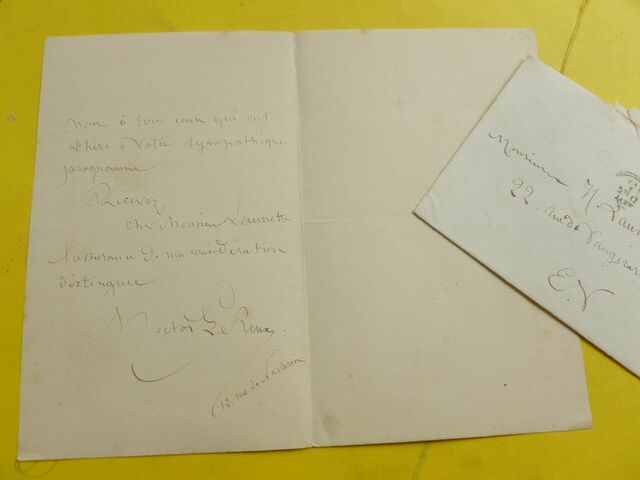 nom à tous ceux qui ont
adhéré à votre sympathique
programme
Recevez,
cher Monsieur Launette
l'assurance d. ma considération
distinguée
Hector Le Roux
12. rue de Navarin
Monsieur H. Laun
22 rue de Vaugirar
E.V